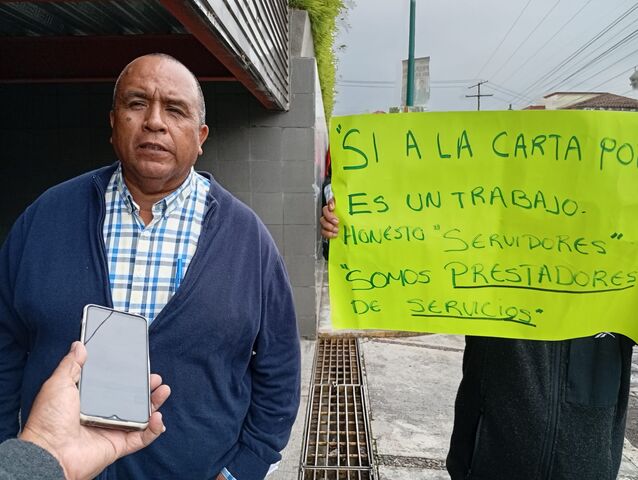 "SI A LA CARTA PO
ES UN TRABAJO.
HONESTO "SERVIDORES"
"SOMOS PRESTADORES
DE SERVICIOS"